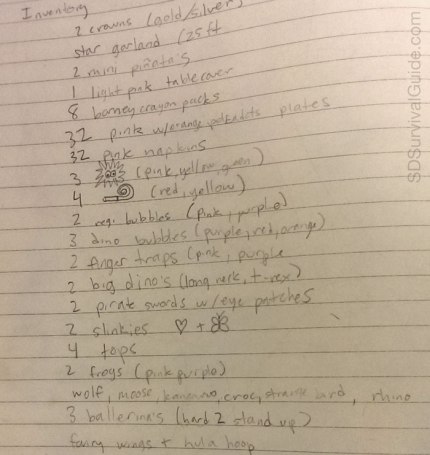 Inventory
2 crowns (gold/silver)
star garland (25 ft
2 mini piñata's
1 light pink tablecover
8 barney crayon packs
32 pink w/orange polkadots plates
32 pink napkins
3 (pink, yellow, green)
4 (red, yellow)
2 reg. bubbles (pink, purple)
3 dino bubbles (purple, red, orange)
2 finger traps (pink, purple
2 big dino's (long neck, t-rex)
2 pirate swords w/eye patches
2 slinkies ♡ +
4 tops
2 frogs (pink purple)
wolf, moose, croc, rhino
3 ballerina's (hard 2 stand up)
fairy wings + hula hoop
SDSurvivalGuide.com